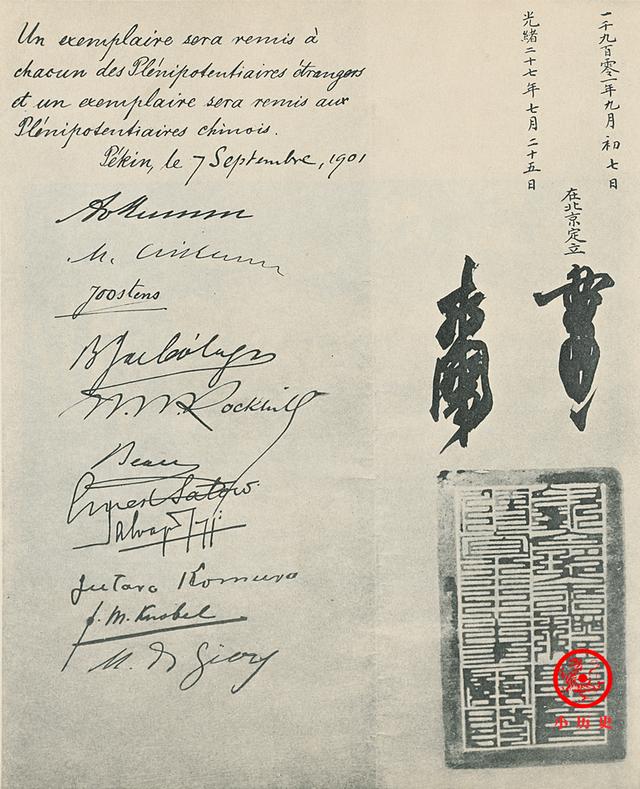 Un exemplaire sera remis à
chacun des Plénipotentiaires étrangers
et un exemplaire sera remis aux
Plénipotentiaires chinois.
Pékin, le 7 Septembre, 1901
Joostens
W. W. Rockhill
Beau
Ernest Satow
Jutaro Komura
F. M. Knobel
M. de Giers
一千九百零一年九月初七日
光緒二十七年七月二十五日
在北京定立
小历史